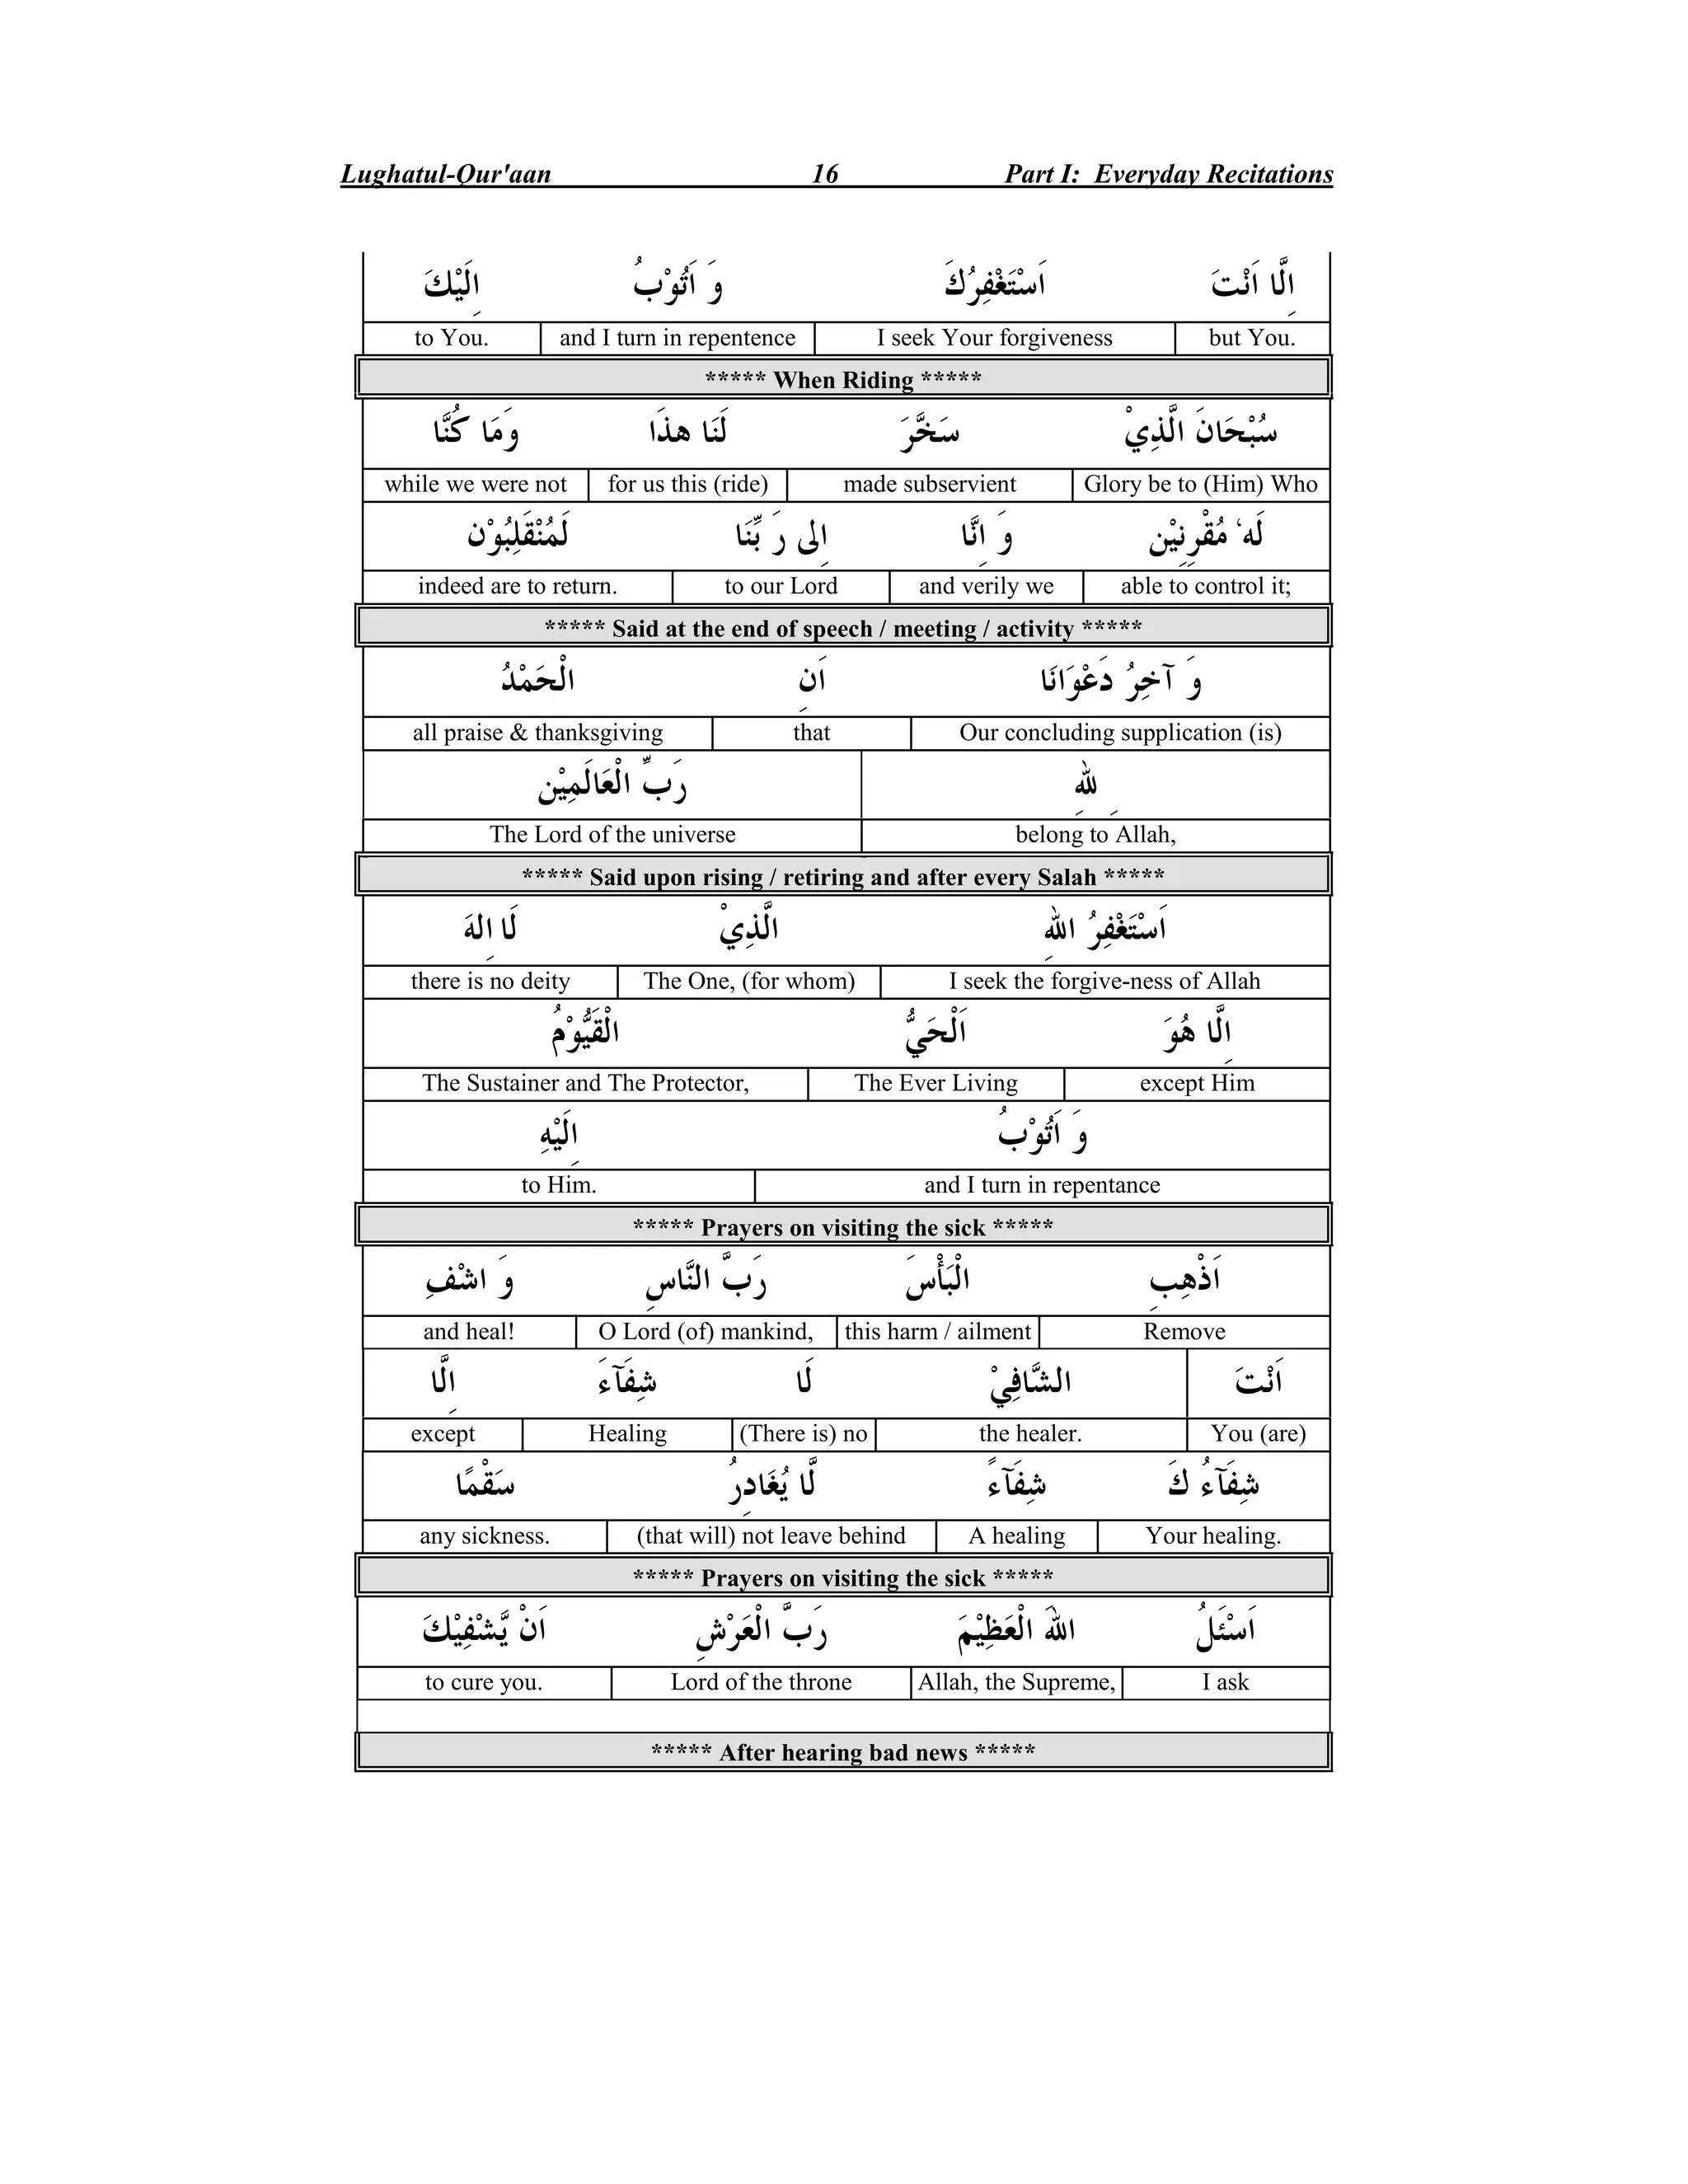 Lughatul-Qur'aan 16 Part I: Everyday Recitations
اِلَّا اَنْتَ اَسْتَغْفِرُكَ وَ اَتُوْبُ اِلَيْكَ
to You. and I turn in repentence I seek Your forgiveness but You.
***** When Riding *****
سُبْحَانَ الَّذِيْ سَخَّرَ لَنَا هذَا وَمَا كُنَّا
while we were not for us this (ride) made subservient Glory be to (Him) Who
لَه‘ مُقْرِنِيْن وَ اِنَّا اِلى رَ بِّنَا لَمُنْقَلِبُوْن
indeed are to return. to our Lord and verily we able to control it;
***** Said at the end of speech / meeting / activity *****
وَ آخِرُ دَعْوَانَا اَنِ الْحَمْدُ
all praise & thanksgiving that Our concluding supplication (is)
لِلّٰهِ رَبِّ الْعَالَمِيْن
The Lord of the universe belong to Allah,
***** Said upon rising / retiring and after every Salah *****
اَسْتَغْفِرُ اللهِ الَّذِيْ لَا اِلهَ
there is no deity The One, (for whom) I seek the forgive-ness of Allah
اِلَّا هُوَ اَلْحَيُّ الْقَيُّوْمُ
The Sustainer and The Protector, The Ever Living except Him
وَ اَتُوْبُ اِلَيْهِ
to Him. and I turn in repentance
***** Prayers on visiting the sick *****
اَذْهِبِ الْبَأْسَ رَبَّ النَّاسِ وَ اشْفِ
and heal! O Lord (of) mankind, this harm / ailment Remove
اَنْتَ الشَّافِيْ لَا شِفَآءَ اِلَّا
except Healing (There is) no the healer. You (are)
شِفَآءُ كَ شِفَآءً لَّا يُغَادِرُ سَقْمًا
any sickness. (that will) not leave behind A healing Your healing.
***** Prayers on visiting the sick *****
اَسْئَلُ اللهَ الْعَظِيْمَ رَبَّ الْعَرْشِ اَنْ يَّشْفِيْكَ
to cure you. Lord of the throne Allah, the Supreme, I ask
***** After hearing bad news *****